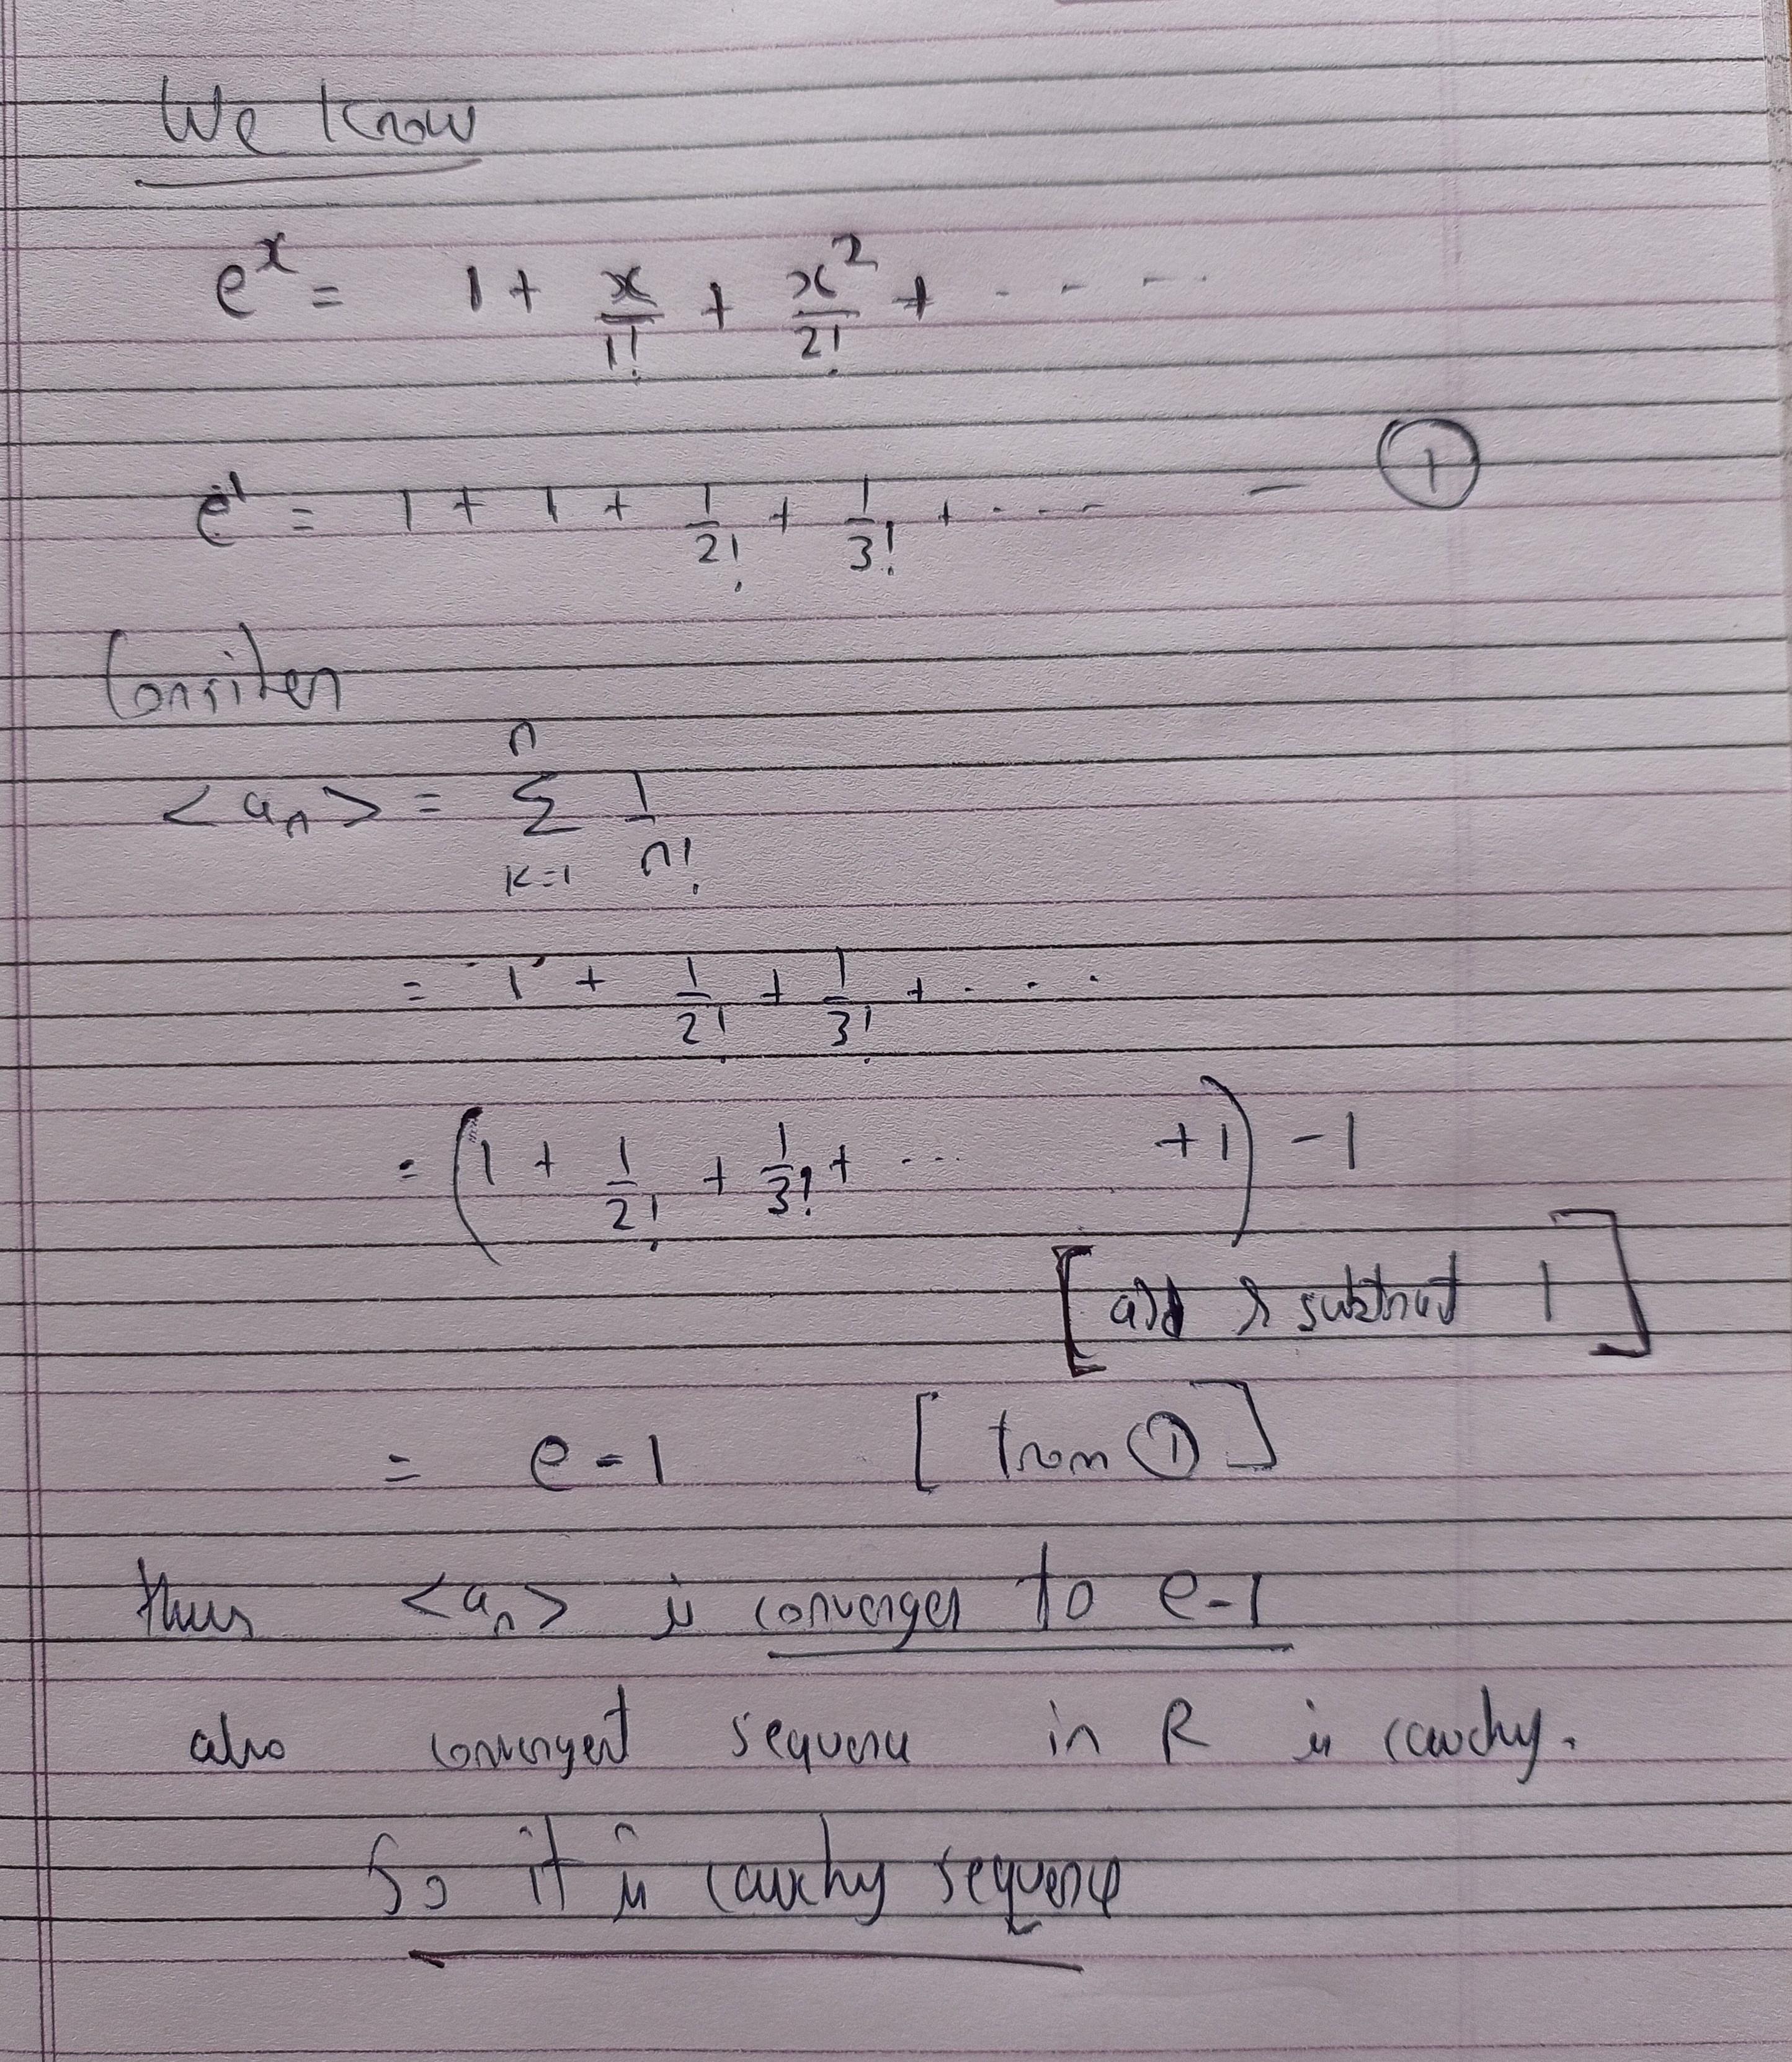 We know
e^x = 1 + x/1! + x^2/2! + - - - -
e^1 = 1 + 1 + 1/2! + 1/3! + - - - - — ①
Consider
<a_n> = Σ_{k=1}^{n} 1/n!
= 1 + 1/2! + 1/3! + - - -
= (1 + 1/2! + 1/3! + --- +1) -1
[add & subtract 1]
= e-1 [from ①]
thus <a_n> is converges to e-1
also convergent sequence in R is cauchy.
So it is cauchy sequence